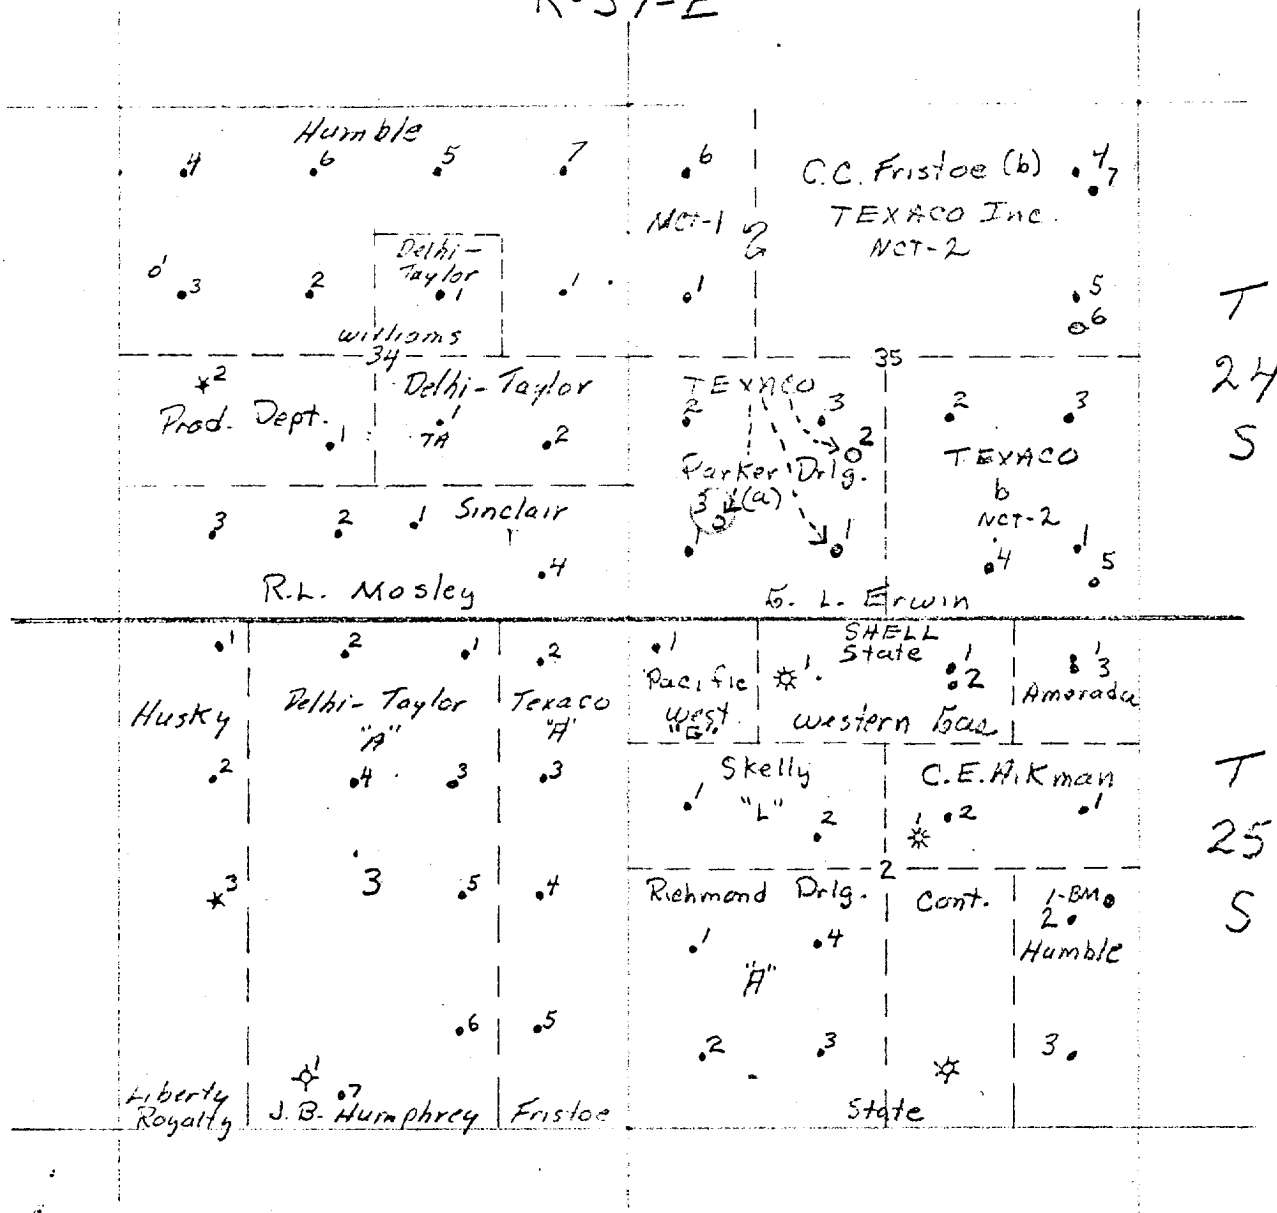 R-37-E
Humble
4 6 5 7
6
C.C. Fristoe (b)
4
7
TEXACO Inc.
NCT-1
NCT-2
Delhi-
Taylor
1
3
2
1
1
1
5
6
Williams
34
35
T
24
S
2
Prod. Dept.
1
Delhi-Taylor
1
TA
2
TEXACO
2
3
2
Parker Drlg.
3
(a)
1
1
2
3
TEXACO
b
NCT-2
1
4
5
3
2
1
Sinclair
4
R.L. Mosley
G. L. Erwin
1
2
1
2
1
Pacific
West
"G"
SHELL
State
1
1
2
Western Gas
1
3
Amerada
Husky
Delhi-Taylor
"A"
Texaco
"A"
2
4
3
3
Skelly
"L"
1
2
C.E. Aikman
1
2
1
T
25
S
2
3
3
5
4
Richmond Drlg.
Cont.
1-BM
2
Humble
1
4
"A"
6
5
2
3
3
1
7
Liberty
Royalty
J.B. Humphrey
Fristoe
State